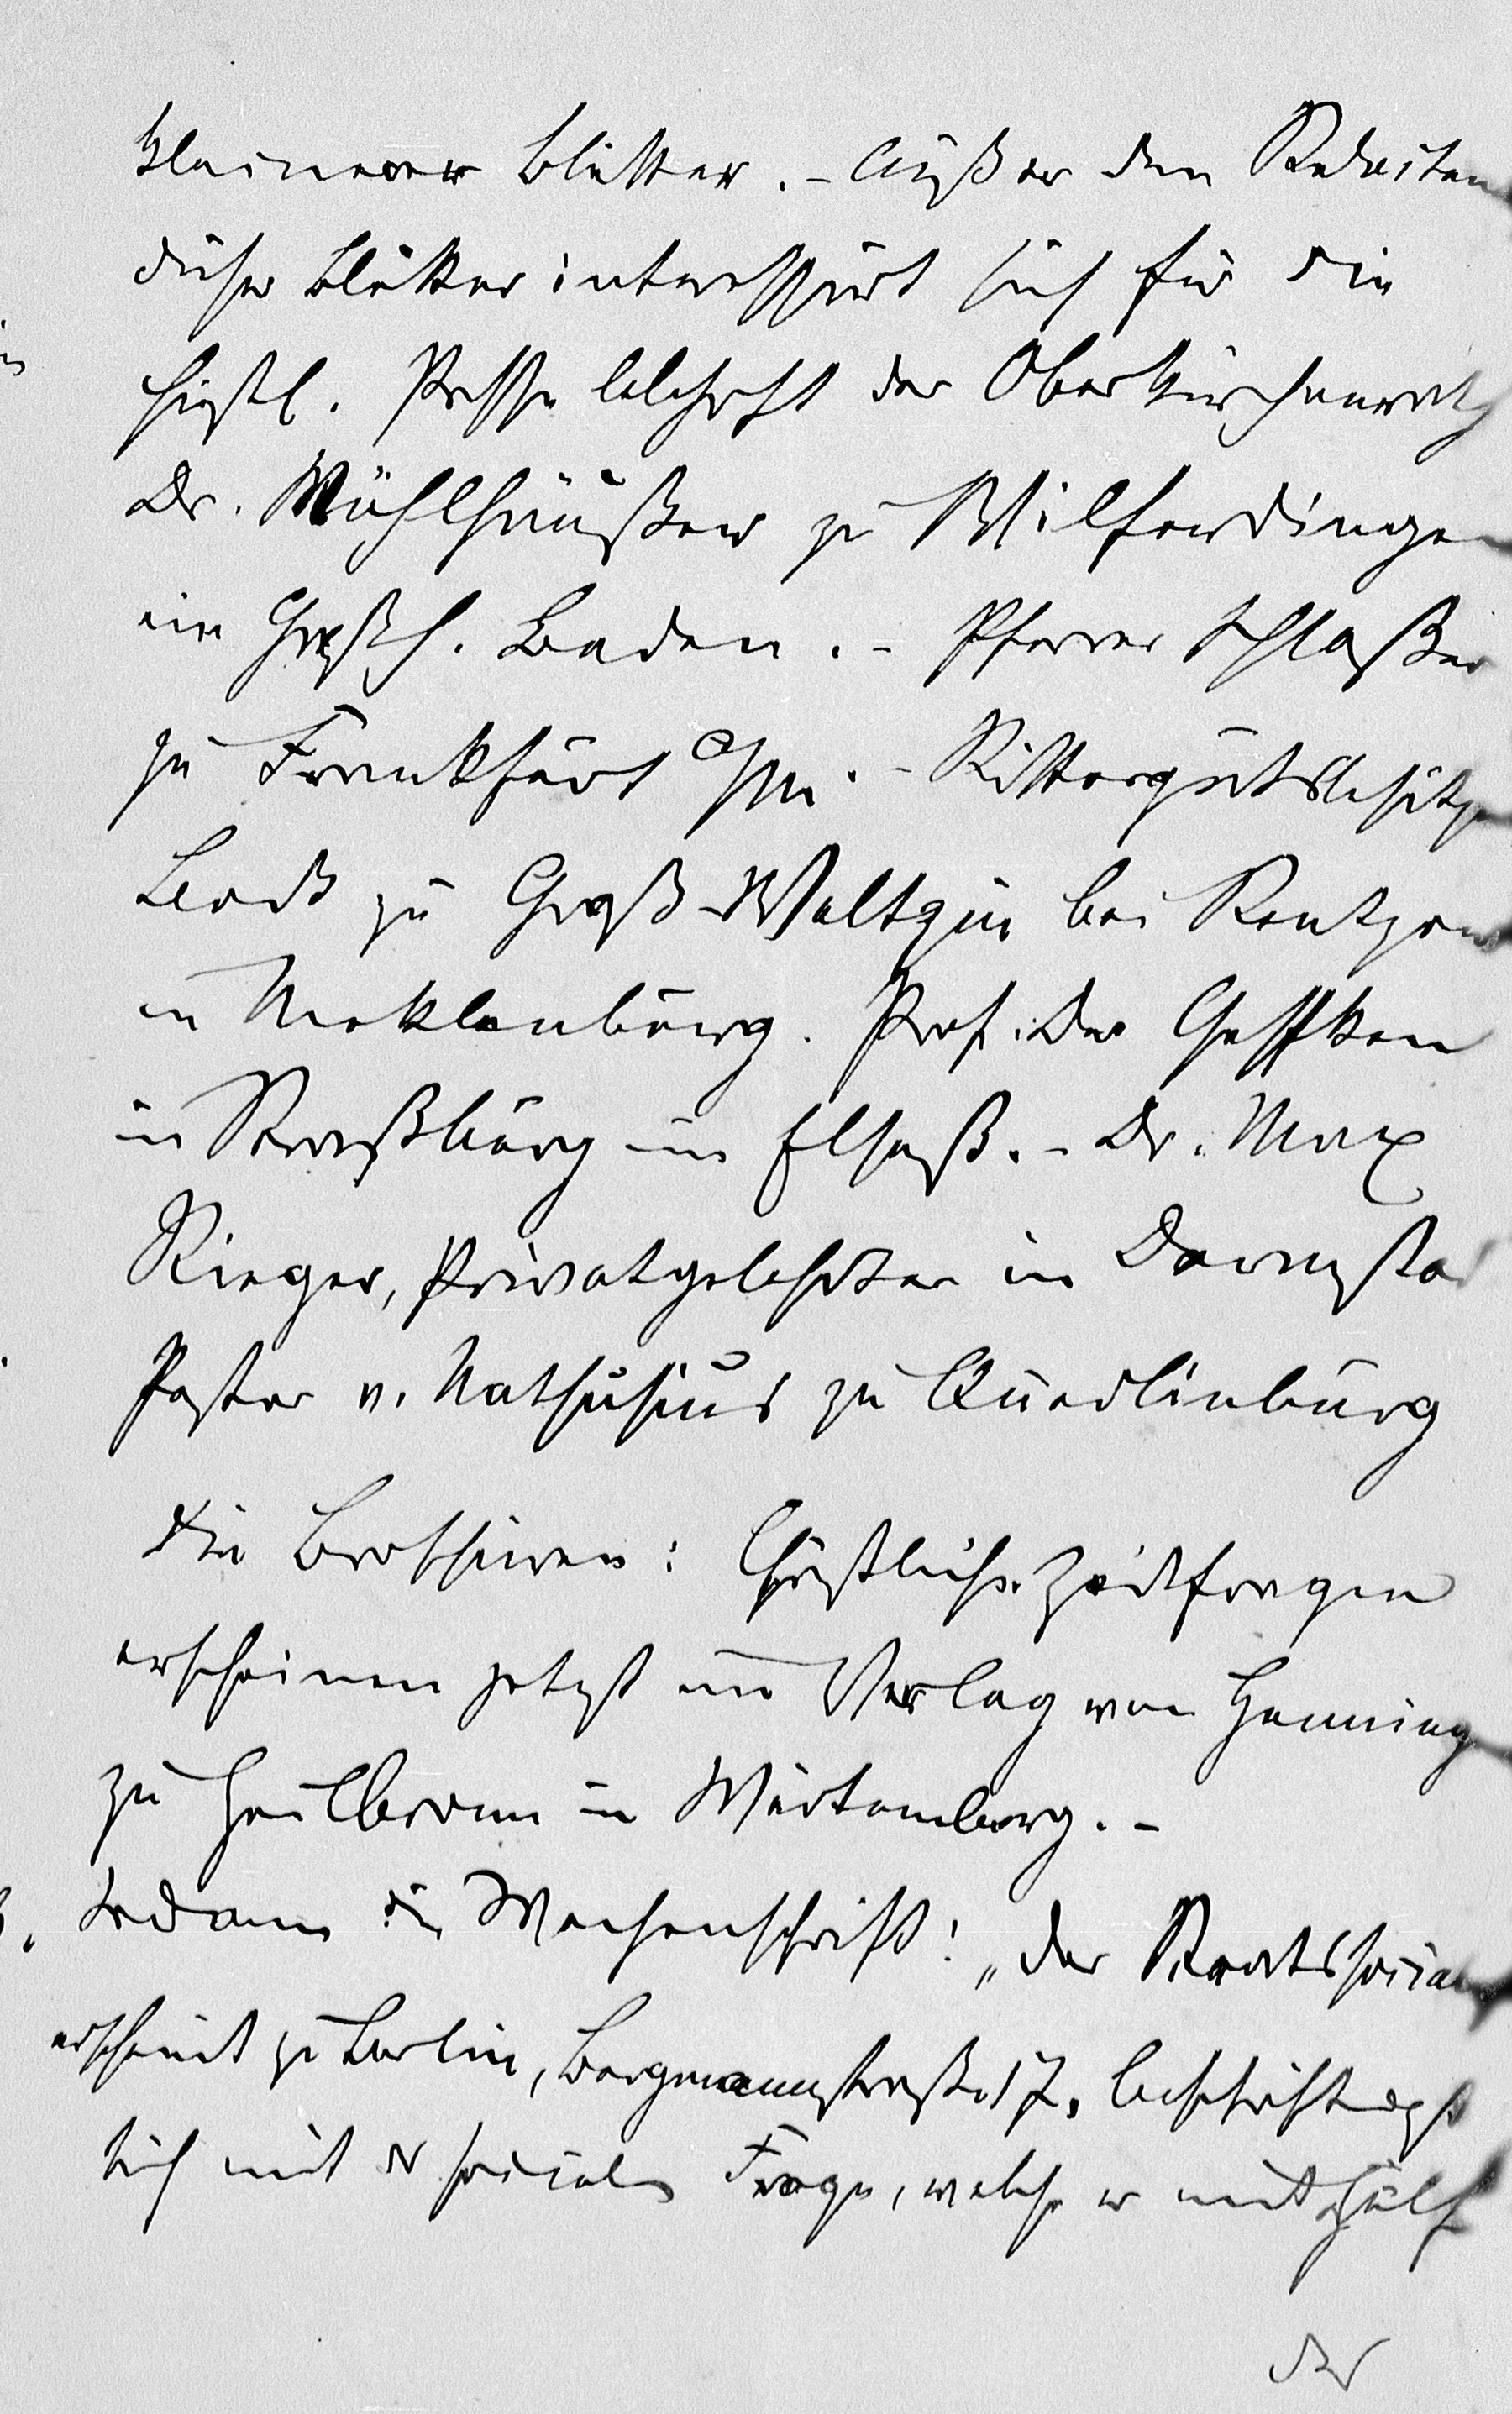 kleinerer Blätter. – Außer den Redacteuren
dieser Blätter interessirt sich für die
christl. Presse lebhaft der Oberkirchenrath
Dr. Mühlhäußer zu Wilferdingen
im Großh. Baden. – Pfarrer Schlosser
zu Frankfurt a/M. – Rittergutsbesitzer
zu Groß-Weltzin bei Rentzow
in Meklenburg. Prof. Dr. Geffken
in Straßburg im Elsaß. – Dr. Max
Rieger, Privatgelehrter in Darmstad
Pastor v. Nathusius zu Quedlinburg
Die Broschüren: Christliche Zeitfragen
erscheinen jetzt im Verlag von Henninger
zu Heilbronn in Würtemberg. –
Sodann die Wochenschrift: „Der Staatssocialist
erscheint zu Berlin, Bergmannstraße 17, beschäftigt
sich mit der socialen Frage, welche er mit Hülfe
der